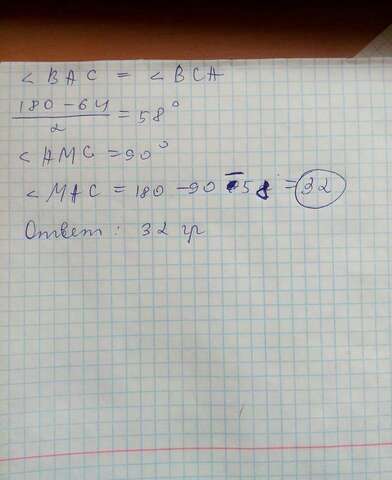 < BAC = < BCA
180 - 64 / 2 = 58°
< AMC = 90°
< MAC = 180 - 90 - 58 = 32
Ответ: 32 гр